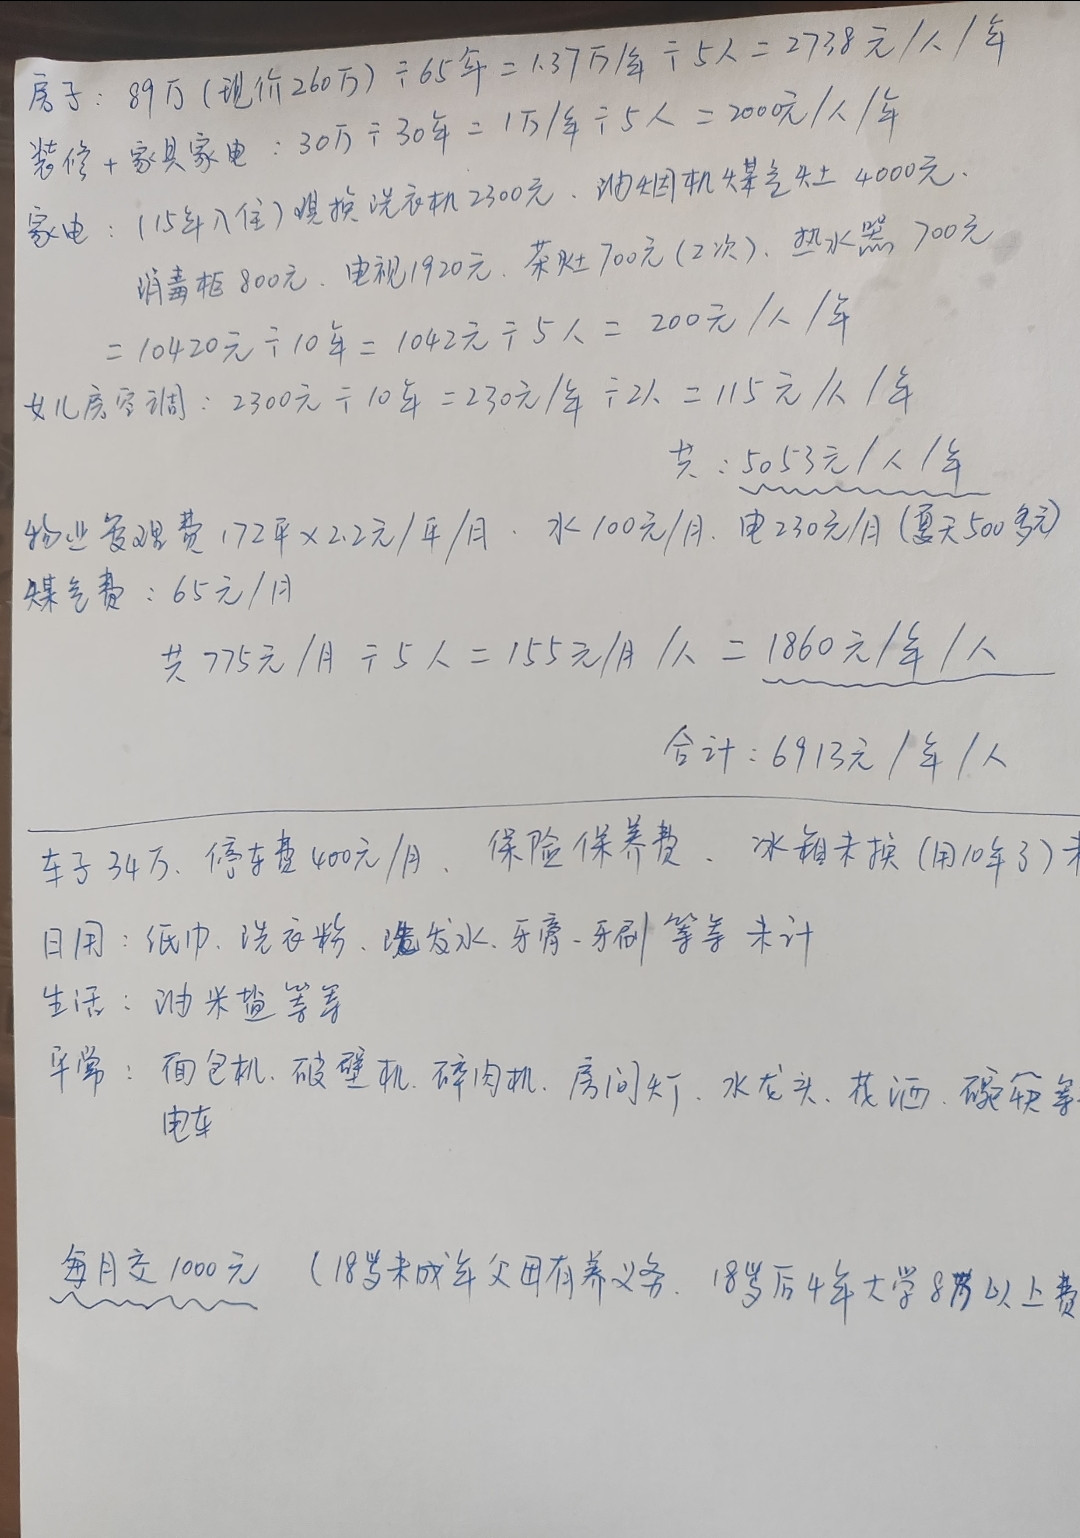 房子：89万（现价260万）÷65年＝1.37万/年÷5人＝2738元/人/年
装修＋家具家电：30万÷30年＝1万/年÷5人＝2000元/人/年
家电：（15年入住）现换洗衣机2300元、油烟机煤气灶4000元、
消毒柜800元、电视1920元、茶灶700元（2次）、热水器700元
＝10420元÷10年＝1042元÷5人＝200元/人/年
女儿房空调：2300元÷10年＝230元/年÷2人＝115元/人/年
共：5053元/人/年
物业管理费172平×2.2元/平/月、水100元/月、电230元/月（夏天500多元）
煤气费：65元/月
共775元/月÷5人＝155元/月/人＝1860元/年/人
合计：6913元/年/人
车子34万、停车费400元/月、保险保养费、冰箱未换（用10年了）
日用：纸巾、洗衣粉、洗发水、牙膏、牙刷等等未计
生活：油米盐等等
平常：面包机、破壁机、碎肉机、房间灯、水龙头、花洒、碗筷等
电车
每月交1000元（18岁未成年父母有养义务、18岁后4年大学8万以上费